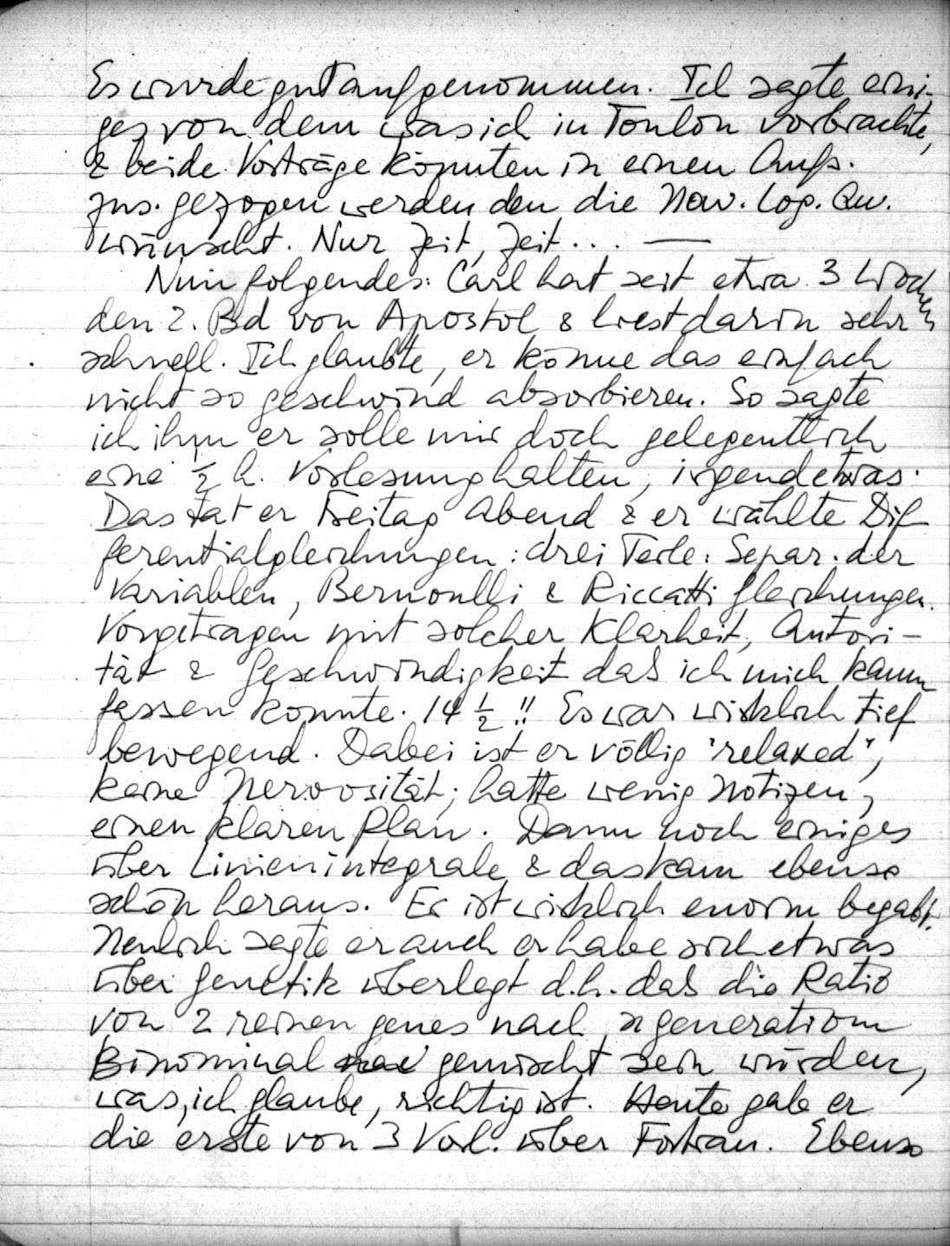 Es wurde gut aufgenommen. Ich sagte eini-
ges von dem was ich in Toulon vorbrachte,
& beide Vorträge könnten in einen Aufs.
zus. gezogen werden den die Nav. Log. Qu.
wünscht. Nur Zeit, Zeit... —
Nun folgendes: Carl hat seit etwa 3 Wochen
den 2. Bd von Apostol & liest darin sehr
schnell. Ich glaubte, er könne das einfach
nicht so geschwind absorbieren. So sagte
ich ihm er solle mir doch gelegentlich
eine ½ h. Vorlesung halten, irgendetwas.
Das tat er Freitag Abend & er wählte Dif
ferentialgleichungen: drei Teile: Separ. der
Variablen, Bernoulli & Riccatti Gleichungen.
Vorgetragen mit solcher Klarheit, Autori-
tät & Geschwindigkeit das ich mich kaum
fassen konnte. 14 ½!! Es war wirklich tief
bewegend. Dabei ist er völlig "relaxed",
keine Nervosität; hatte wenig Notizen,
einen klaren Plan. Dann noch einiges
über Linienintegrale & das kam ebenso
schön heraus. Er ist wirklich enorm begabt.
Neulich sagte er auch er habe sich etwas
über Genetik überlegt d.h. das die Ratio
von 2 reinen genes nach n generation
Binominal gemischt sein würden,
was, ich glaube, richtig ist. Heute gab er
die erste von 3 Vorl. über Fortran. Ebenso